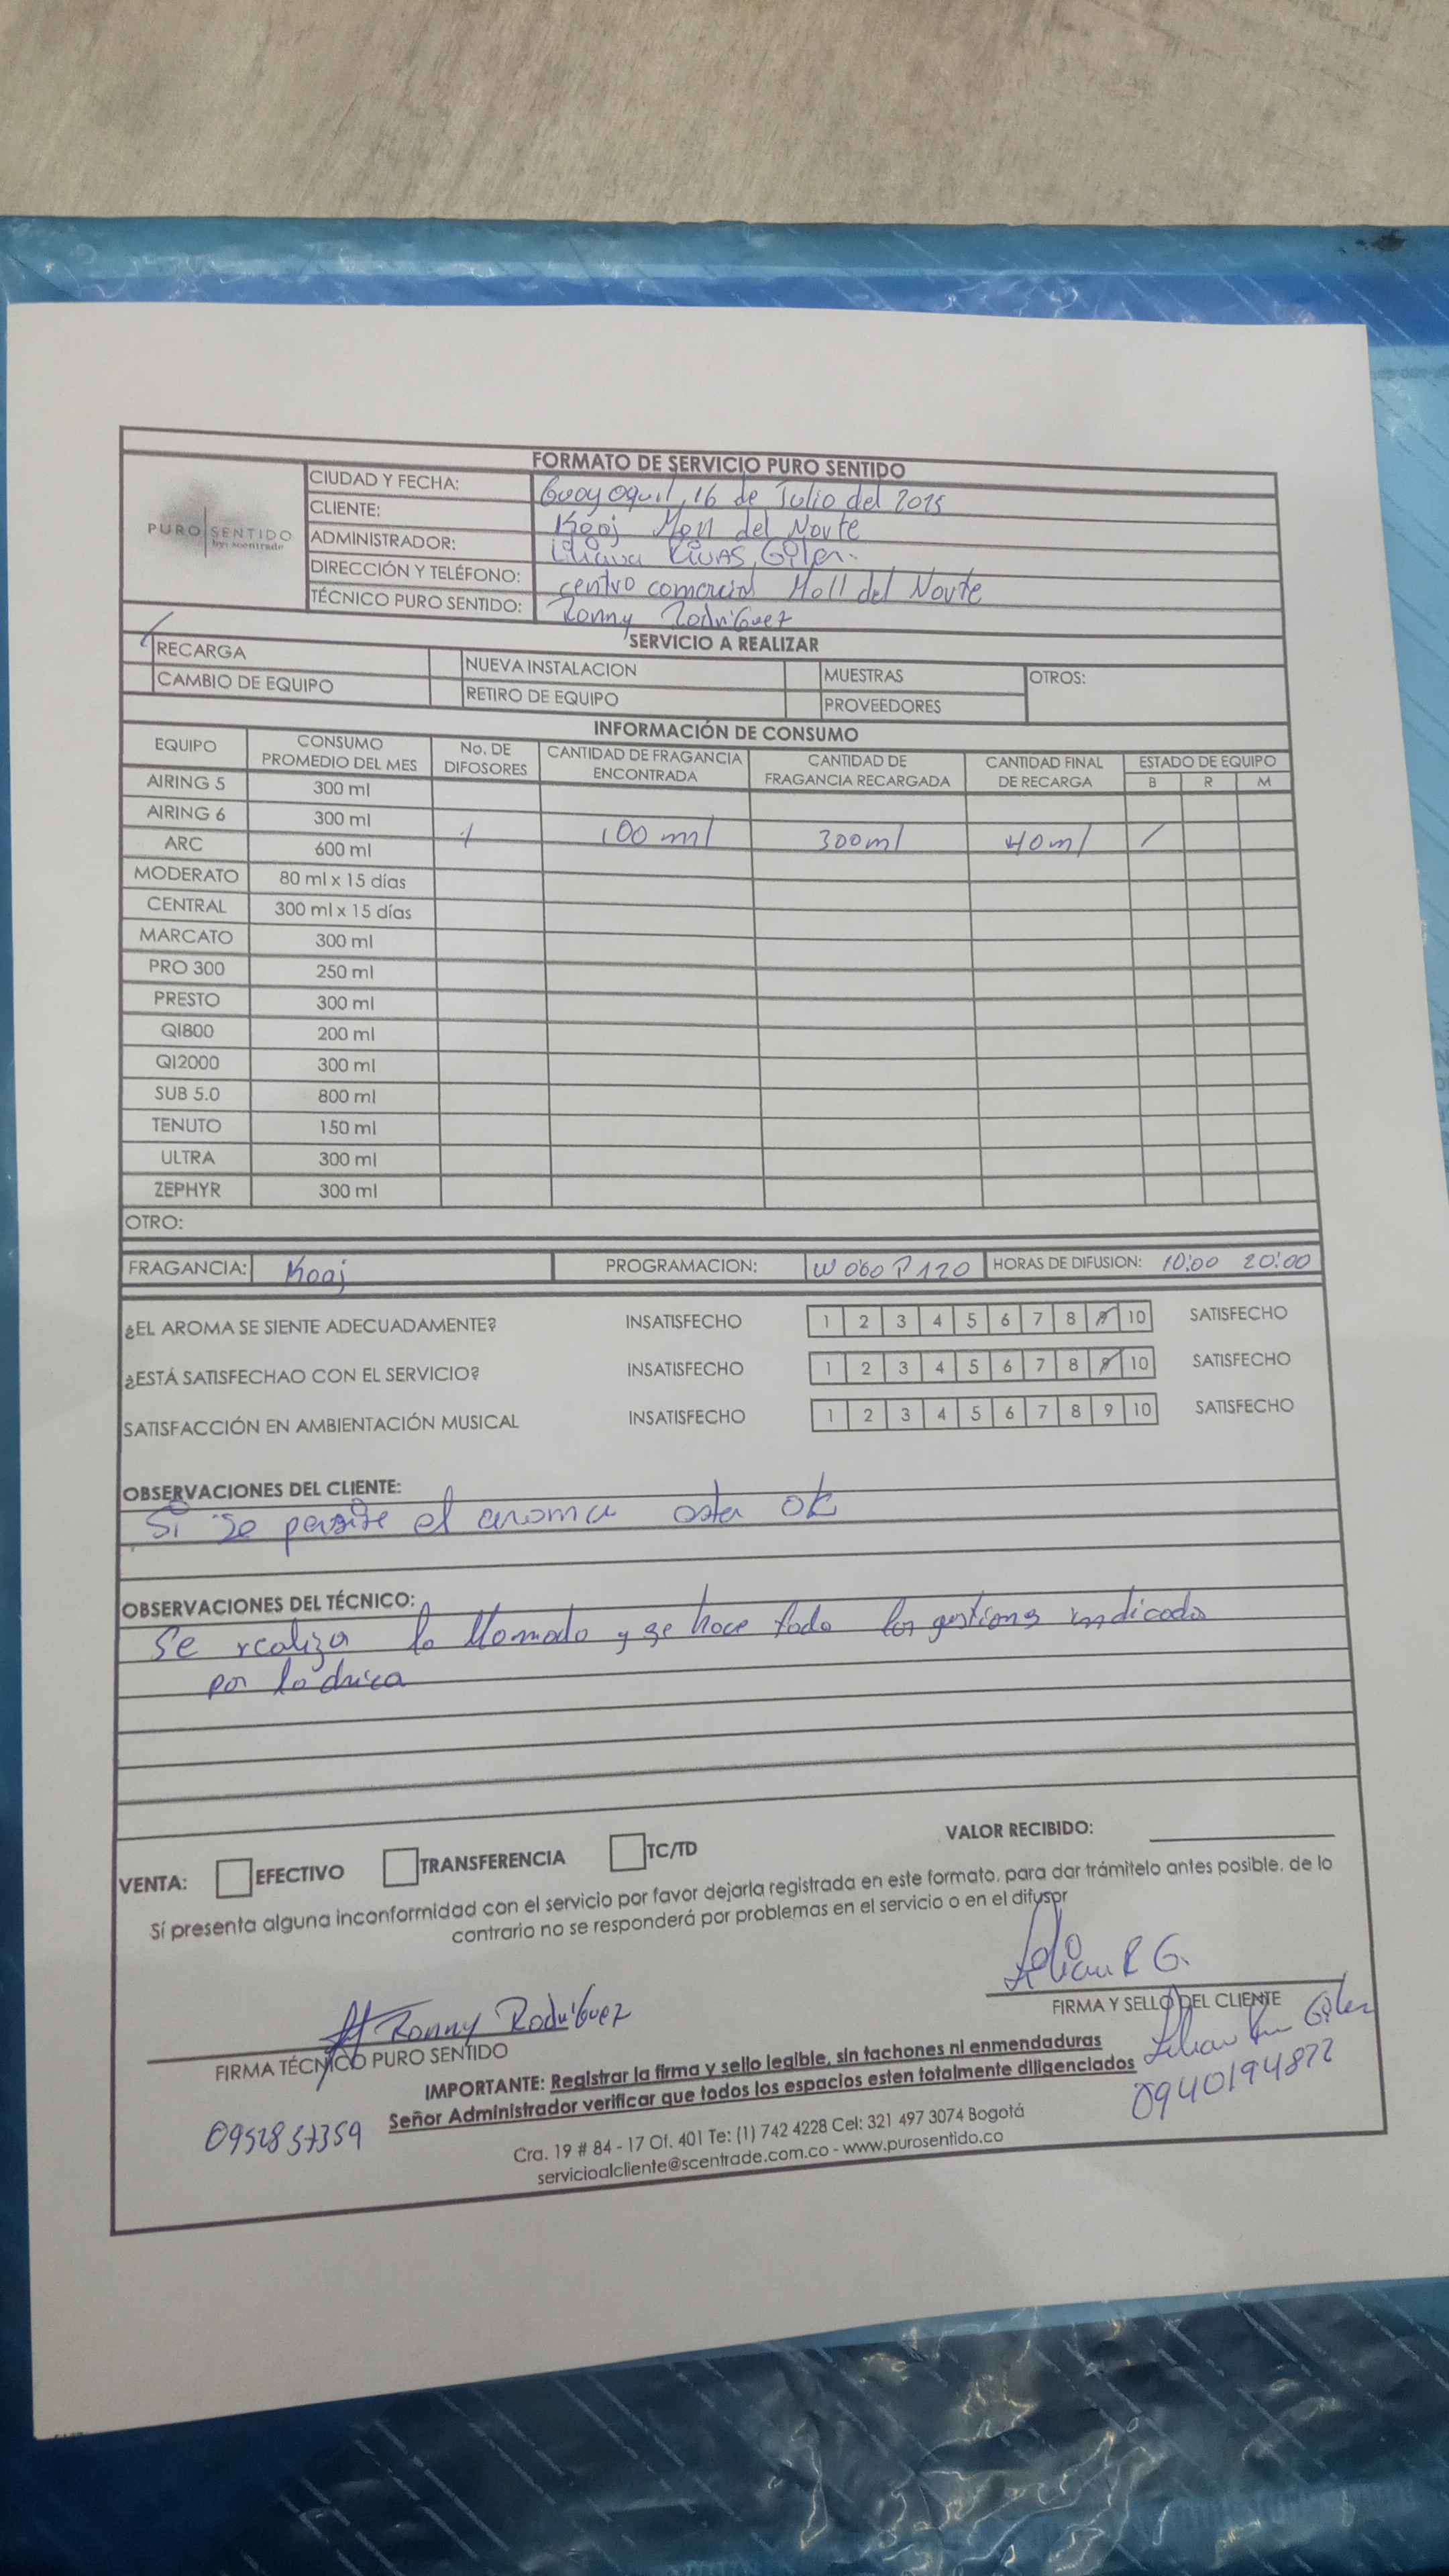 FORMATO DE SERVICIO PURO SENTIDO
PURO SENTIDO
by: scentrade
CIUDAD Y FECHA: Guayaquil, 16 de Julio del 2025
CLIENTE: Kooj Mall del Norte
ADMINISTRADOR: Liliana Rivas Giler.
DIRECCIÓN Y TELÉFONO: centro comercial Mall del Norte
TÉCNICO PURO SENTIDO: Ronny Rodríguez
SERVICIO A REALIZAR
RECARGA NUEVA INSTALACION MUESTRAS OTROS:
CAMBIO DE EQUIPO RETIRO DE EQUIPO PROVEEDORES
INFORMACIÓN DE CONSUMO
EQUIPO CONSUMO PROMEDIO DEL MES No. DE DIFOSORES CANTIDAD DE FRAGANCIA ENCONTRADA CANTIDAD DE FRAGANCIA RECARGADA CANTIDAD FINAL DE RECARGA ESTADO DE EQUIPO
B R M
AIRING 5 300 ml
AIRING 6 300 ml
ARC 600 ml 1 100 ml 300ml 40ml /
MODERATO 80 ml x 15 días
CENTRAL 300 ml x 15 días
MARCATO 300 ml
PRO 300 250 ml
PRESTO 300 ml
QI800 200 ml
QI2000 300 ml
SUB 5.0 800 ml
TENUTO 150 ml
ULTRA 300 ml
ZEPHYR 300 ml
OTRO:
FRAGANCIA: Kooj PROGRAMACION: W 060 P 120 HORAS DE DIFUSION: 10:00 20:00
¿EL AROMA SE SIENTE ADECUADAMENTE? INSATISFECHO 1 2 3 4 5 6 7 8 9 10 SATISFECHO
¿ESTÁ SATISFECHAO CON EL SERVICIO? INSATISFECHO 1 2 3 4 5 6 7 8 9 10 SATISFECHO
SATISFACCIÓN EN AMBIENTACIÓN MUSICAL INSATISFECHO 1 2 3 4 5 6 7 8 9 10 SATISFECHO
OBSERVACIONES DEL CLIENTE:
Si se persive el aroma esta ok
OBSERVACIONES DEL TÉCNICO:
Se realiza la llamada y se hace todo las gestions indicada
por la
VENTA: EFECTIVO TRANSFERENCIA TC/TD VALOR RECIBIDO:
Sí presenta alguna inconformidad con el servicio por favor dejarla registrada en este formato, para dar trámitelo antes posible, de lo
contrario no se responderá por problemas en el servicio o en el difusor
Lilian R G.
Ronny Rodríguez
FIRMA TÉCNICO PURO SENTIDO
FIRMA Y SELLO DEL CLIENTE
Giler
IMPORTANTE: Registrar la firma y sello legible, sin tachones ni enmendaduras
Señor Administrador verificar que todos los espacios esten totalmente diligenciados
0952857359
0940194872
Cra. 19 # 84 - 17 Of. 401 Te: (1) 742 4228 Cel: 321 497 3074 Bogotá
servicioalcliente@scentrade.com.co - www.purosentido.co